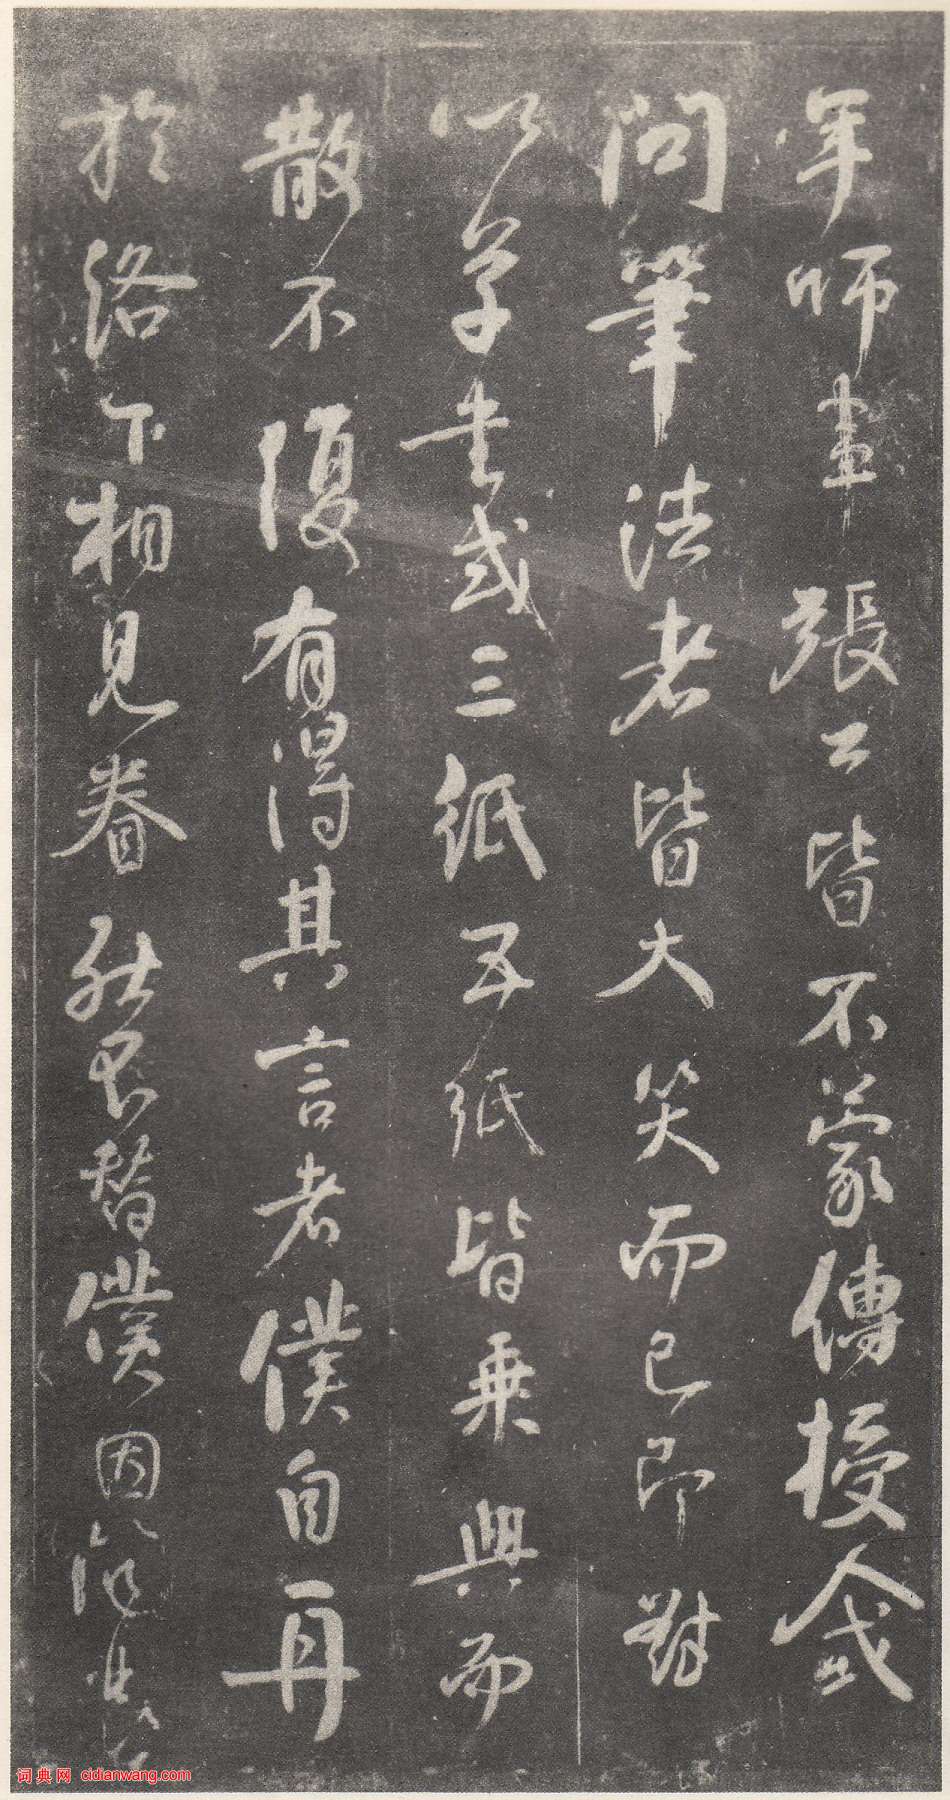 年師畫張公皆不蒙傳授人或
問筆法者皆大笑而已即對
以草書或三紙五紙皆乘興而
散不復有得其言者僕自再
於洛下相見眷然替僕因
词典网 cidianwang.com